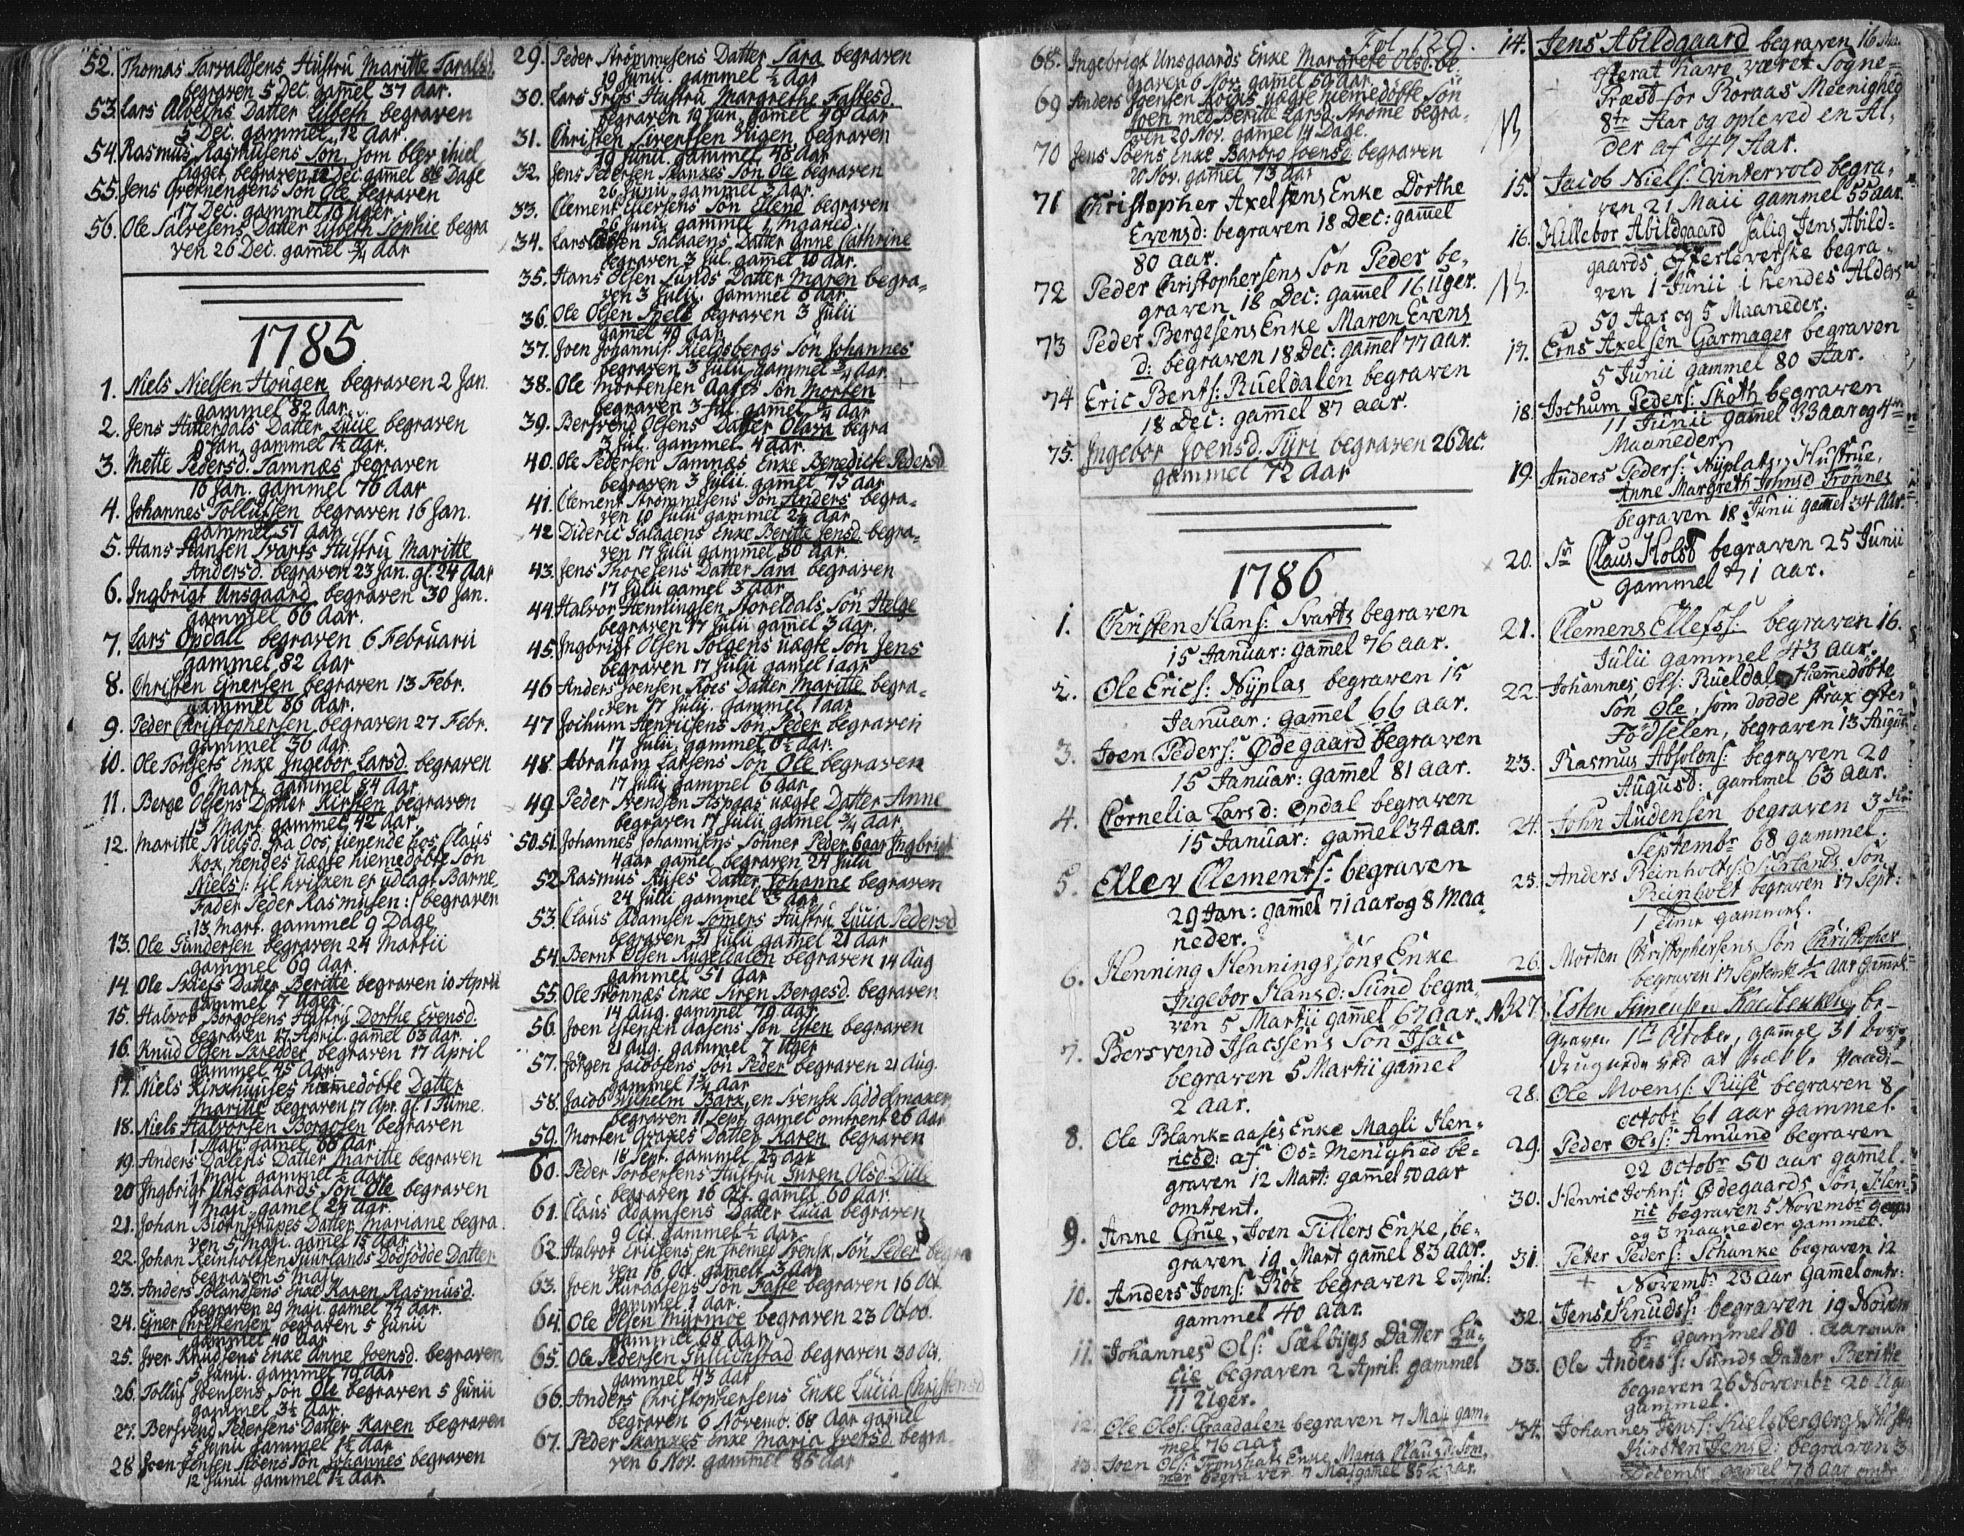 52. Thomas Tarvaldsens Hustru Maritte Taralsd.
begraven 5 Dec. gammel 37 aar.
53. Lars Albechs Datter Lisbeth begraven
5 Dec. gammel 12 aar.
54. Rasmus Rasmusens Son, som blev ihiel
ligget, begraven 12 Dec. gamel 8te Dage
55. Jens Overhengens Son Ole begraven
17 Dec. gammel 10 uger.
56. Ole Salvesens Datter Lisbeth Sophie begra
ven 26 Dec. gamel ¾ aar
1785
1. Niels Nielsen Hougen begraven 2 Jan.
gammel 82 aar.
2. Jens Hitterdals Datter Lucie begraven
9 Jan. gammel 1½ aar.
3. Mette Pedersd. Tamnæs begraven
16 Jan. gammel 76 aar
4. Johannes Tollufsen begraven 16 Jan.
gammel 51 aar.
5. Hans Hansen Svarts Hustru Maritte
Andersd. begraven 23 Jan. gl. 24 aar
6. Ingbrigt Unsgaard begraven 30 Jan.
gammel 66 aar.
7. Lars Opdall begraven 6 Februarii
gammel 82 aar
8. Christen Ejnersen begraven 13 Febr.
gammel 86 aar.
9. Peder Christophersen begraven 27 Febr.
gammel 56 aar.
10. Ole Tonsets Enke Ingebor Larsd. begraven
6 Mart. gammel 84 aar.
11. Berge Olsens Datter Kirsten begraven
13 Mart. gammel 42 aar.
12. Maritte Nielsd. fra Oos, tienende hos Claus
Kok, hendes uægte hiemedøbte Son
Niels /: til hvilken er udlagt Barne-
Fader Peder Rasmusen :/ begraven
13 Mart. gammel 9 Dage
13. Ole Gundersen begraven 24 Martii
gammel 69 aar.
14. Ole Skiefs Datter Beritte begraven 10 April
gammel 7 uger.
15. Halvor Borgosens Hustru Dorthe Evensd.
begraven 17 April. gamel 63 aar.
16. Knud Olsen Skredder begraven 17 April
gammel 45 aar.
17. Niels Kirkhuuses hiemmedøbte Datter
Maritte begraven 17 Apr. gl. 1 Time.
18. Niels Halvorsen Borgosen begraven
1 Maji gamel 68 aar.
19. Anders Dalens Datter Maritte begraven
1 Maji gammel ½ aar.
20 Ingbrigt Unsgaards Son Ole begraven
1 Maji gamel 2½ aar.
21. Johan Biornstrupes Datter Mariane begra
ven 5 Maji. gamel 15 aar.
22. Johan Reinholtsen Suurlands Dødfødde Datter
begraven 5 Maji
23. Anders Tolandsens Enke Karen Rasmusd.
begraven 29 Maji. gamel 72 aar.
24. Ejner Christensen begraven 5 Junii
gammel 40 aar
25. Iver Knudsens Enke Anne Joensd. begraven
5 Junii. gammel 79 aar
26. Tolluf Joensens Son Ole begraven 5 Junii
gammel 3½ aar.
27. Bersvend Pedersens Datter Karen begraven
5 Junii gammel 1½ aar
28 Joen Jensen Moens Son Johannes begraven
12 Junii gammel 1½ aar.
29. Peder Strømmesens Datter Sara begraven
19 Junii. gammel ½ aar
30. Lars Friis Hustru Margrethe Fastesd.
begraven 19 Jun. gamel 49 aar
31. Christen Sivertsen Vingen begraven
19 Junii. gammel 48 aar
32. Jens Pedersen Skankes Son Ole begraven
26 Junii. gammel 3 aar.
33. Clement Ellersens Son Ellend begraven
26 Junii. gammel 1 Maaned.
34. Lars Galaaens Datter Anne Cathrine
begraven 3 Jul. gamel 10 aar.
35. Hans Olsen Lunds Datter Maren begra-
ven 3 Julii. gammel 8 aar
36. Ole Olsen Spell begraven 3 Julii
gamel 49 aar.
37. Joen Johannis. Kieldsbergs Son Johannes
begraven 3 Julii gammel ¾ aar.
38. Ole Mortensen Aases Son Morten
begraven 3 Jul. gamel ¼ aar
39. Bersvend Olsens Datter Olava begra
3 Jul. gammel 4 aar.
40. Ole Pedersen Tamnæs Enke Benedicte Pedersd
begraven 3 Julii. gamel 75 aar
41. Clement Strømmesens Son Anders begra-
ven 10 Julii gammel 2½ aar
42 Dideric Galaaens Enke Beritte Jensd. begra-
ven 17 Julii gammel 80 aar.
43. Jens Thoresens Datter Sara begraven
17 Julii gammel 3 aar
44 Halvor Hemmingsen Storeldals Son Helge
begraven 17 Julii gamel 3 aar.
45. Ingbrigt Olsen Solgens uægte Son Jens
begraven 17 Julii gamel 1 aar
46 Anders Joensen Roes Datter Maritte begra-
ven 17 Julii. gammel 1 aar
47 Jochum Henricsens Son Peder begraven
17 Julii gammel 6½ aar.
48 Abraham Larsens Son Ole begraven
17 Julii gammel 6 aar
49 Peder Svendsen Aspaas uægte Datter Anne
begraven 17 Julii gamel ¾ aar.
50.51. Johannes Johannisens Sønner Peder 6 aar Ingbrigt
4 aar gamel begraven 24 Julii
52 Rasmus Ryses Datter Johanne begraven
24 Julii gammel 3 aar
53. Claus Adamsen Somers Hustru Lucia Pedersd
begraven 31 Julii gamel 21 aar
54 Bernt Olsen Rugeldalen begraven 14 Aug
gammel 51 aar
55. Ole Trønnæs Enke Siren Bergesd. begraven
14 Aug. gammel 79 aar.
56. Joen Estensen Aasens Son Esten begraven
21 Aug. gammel 7 uger
57. Jørgen Jacobsens Son Peder begraven 21 Aug.
gammel 1¾ aar
58. Jacob Wilhelm Bark, en Svensk Saddelmaker
begraven 11 Sept. gamel omtrent 26 aar
59. Morten Graxes Datter Karen begraven
18 Sept. gammel 2¾ aar
60. Peder Torbersens Hustru Guren Olsd. Dille
begraven 16 Oct. gamel 60 aar.
61. Claus Adamsens Datter Lucia begraven
9 Oct. gammel ½ aar.
62. Halvor Ericsens, en fremed Svensk, Son Peder begra
ven 16 Oct. gamel 3 aar
63. Joen Kurdasens Son Faste begraven 16 Oct.
gammel 1 aar.
64. Ole Olsen Myrmoe begraven 23 Octob.
gammel 68 aar.
65. Ole Pedersen Gullichstad begraven 30 Oct.
gammel 43 aar
66. Anders Christophersens Enke Lucia Christensd
begraven 6 Novemb. 68 aar gamel
67. Peder Skankes Enke Maria Iversd. begra-
ven 6 Nov. gammel 85 aar
Fol. 129.
68. Ingebrigt Unsgaards Enke Margrete Olsd. be-
graven 6 Nov. gamel 59 aar.
69 Anders Joensen Roeens uægte hiemedøbte Son
Joen med Beritte Larsd. Strøme begra-
ven 20 Nov. gamel 14 Dage.
70 Jens Soens Enke Barbro Joensd begraven
20 Nov. gamel 73 aar
71 Christopher Axelsens Enke Dorthe
Evensd: begraven 18 Dec: gamel
80 aar.
72 Peder Christophersens Son Peder be-
graven 18 Dec: gamel 16 uger.
73 Peder Bergesens Enke Maren Evens
d: begraven 18 Dec: gamel 77 aar.
74 Eric Bents: Rueldalen begraven
18 Dec: gamel 87 aar.
75. Ingebor Joensd. Tyri begraven 26 Dec.
gammel 72 aar
1786
1. Christen Hans: Svarts begraven
15 Januar: gamel 76 aar.
2. Ole Erics: Nyplas begraven 15
Januar: gamel 66 aar.
3. Joen Peders: Ødegaard begraven
15 Januar: gamel 81 aar.
4. Cornelia Larsd: Opdal begraven
15 Januar: gamel 34 aar.
5. Eller Clements: begraven
29 Jan: gamel 71 aar og 8 Maa-
neder.
6. Henning Henningsøns Enke
Ingebor Hansd: Sund begra-
ven 5 Martii gamel 67 aar.
7. Bersvend Isacsens Son Isac
begraven 5 Martii gamel
2 aar.
8. Ole Blank-aases Enke Magli Hen-
ricsd: af Oos Menighed be-
graven 12 Mart: gamel 50 aar
omtrent.
9. Anne Grue, Joen Tillers Enke, be-
graven 19 Mart gamel 83 aar.
10. Anders Joens: Roe begraven 2 April:
gammel 40 aar.
11. Johannes Ols: Sælbyes Datter Lu-
cie begraven 2 April. gammel
11 Uger.
12. Ole Ols: Graadalen begraven 7 Maji gam-
mel 76 aar
13. Joen Ols: Tronshats Enke Maria Clausd: Som-
mer begraven 7 Maj gamel 85½ aar.
14. Jens Abildgaard begraven 16 Mai.
efterat have været Sogne-
Præst for Røraas Meenighed
8te Aar og opleved en Al-
der af 47 Aar.
NB
15. Jacob Niels: Vintervold begra-
ven 21 Maii gammel 55 aar.
16. Hillebor Abildgaard salig Jens Abild-
gaards efterleverske begra-
ven 1 Junii i hendes Alders
50 Aar og 5 Maaneder.
NB.
17. Erns Axelsen Garmager begraven
5 Junii gammel 80 Aar.
18. Jochum Peders: Skøth begraven
11 Junii gamel 33 aar og 4re
Maaneder
19. Anders Peders: Nyplats Hustrue,
Anne Margreth Johnsd Trønnes
begraven 18 Junii gamel 34 aar.
20. Sr Claus Holst begraven 25 Junii
gammel 71 aar.
21. Clemens Ellefs: begraven 16.
Julii gammel 43 aar.
22. Johannes Ols: Rueldals Hiemmedøbte
Søn Ole, som døde strax efter
Fødselen, begraven 13 August
23. Rasmus Absolons: begraven 20
August: gammel 63 aar.
24. John Audensen begraven 3die
Septembr 68 gammel.
25. Anders Reinholts: Suurlands Søn
Reinholt begraven 17 Sept:
1 Time gammel.
26. Morten Christophersens Søn Christopher
begraven 17 Septembr ½ aar gammel
NB 27. Esten Simensen be-
graven 1te October, gamel 31
ved at
28. Ole Moens: Riise begraven 8
Octobr 61 aar gammel.
29. Peder Ols: Amund begraven
22 Octobr 50 aar gamel.
30. Henric Johns: Ødegaards Søn Hen-
ric begraven 5 Novembr
og 3 maaneder gammel.
31. Peter Peders: Schanke begraven 12
Novembr 23 aar gamel omtr:
32. Jens Knuds: begraven 19 Novem
br gammel 80 aar
33. Ole Anders: Sunds Datter Beritte
begraven 26 Novembr 20 Uger
gammel.
34. Johannes Jens: Kielsbergs
Kirsten Jensd: begraven 3
Decembr gamel 70 aar